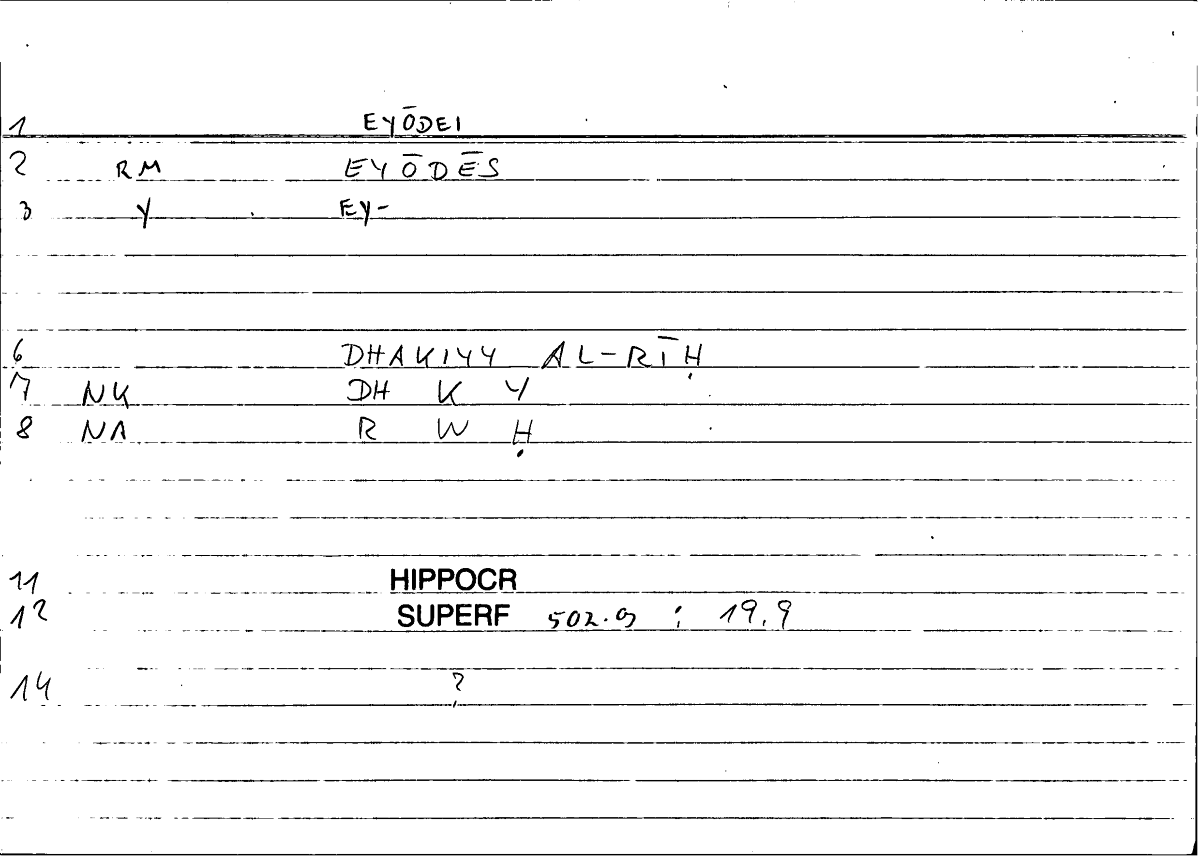 1 EYŌDEI
2 RM EYŌDĒS
3 Y EY-
6 DHAKIYY AL-RĪḤ
7 NK DH K Y
8 NA R W Ḥ
11 HIPPOCR
12 SUPERF 502.9 : 19.9
14 ?